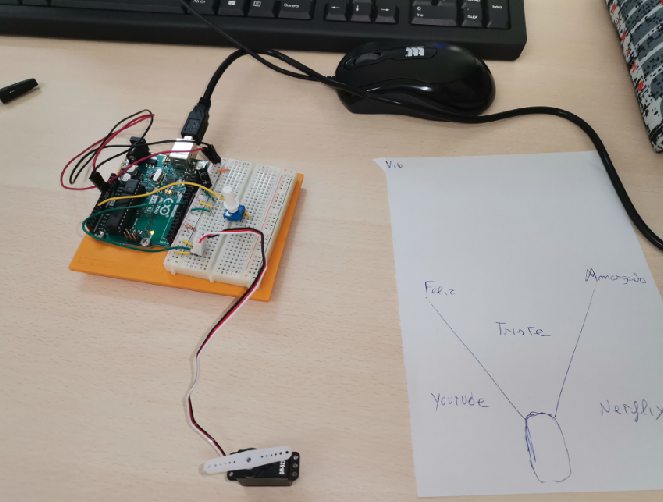 Feliz
Amargado
Triste
Youtube
Netflix